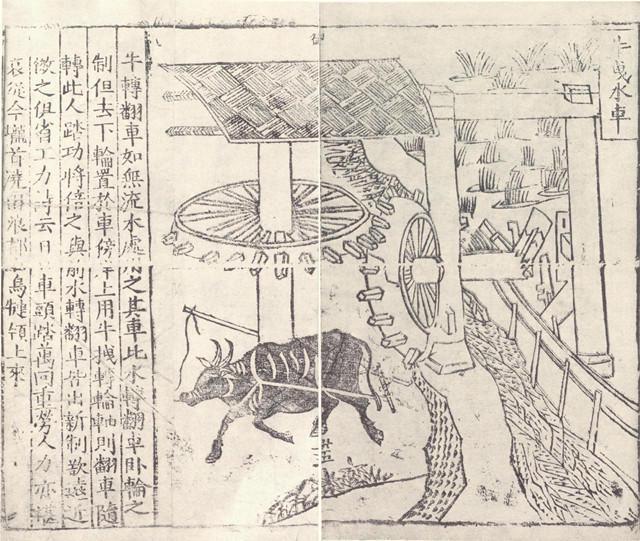 牛曳水車
牛轉翻車如無流水處用之其車比水轉翻車卧輪之
制但去下輪置於車傍岸上用牛拽轉輪軸則翻車隨
轉比人踏功將倍之與前水轉翻車皆出新制欲遠近
效之俱省工力詩云日 車頭踏萬回重勞人力亦堪
哀從今壠首澆 浪都 烏犍領上來